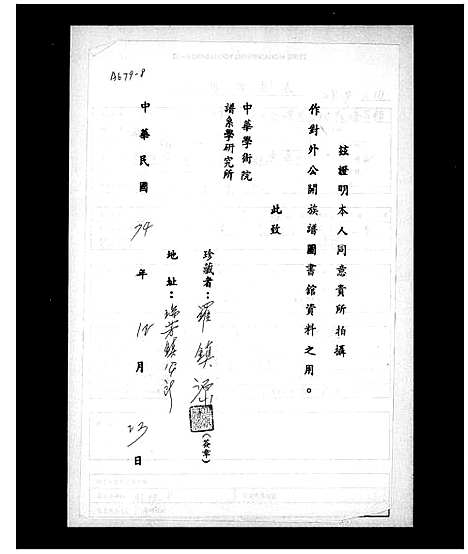 A679-8
茲證明本人同意貴所拍攝
作對外公開族譜圖書館資料之用。
此致
中華學術院
譜系學研究所
珍藏者：羅鎮源
(簽章)
地址：瑞芳鎮
中華民國74年12月23日